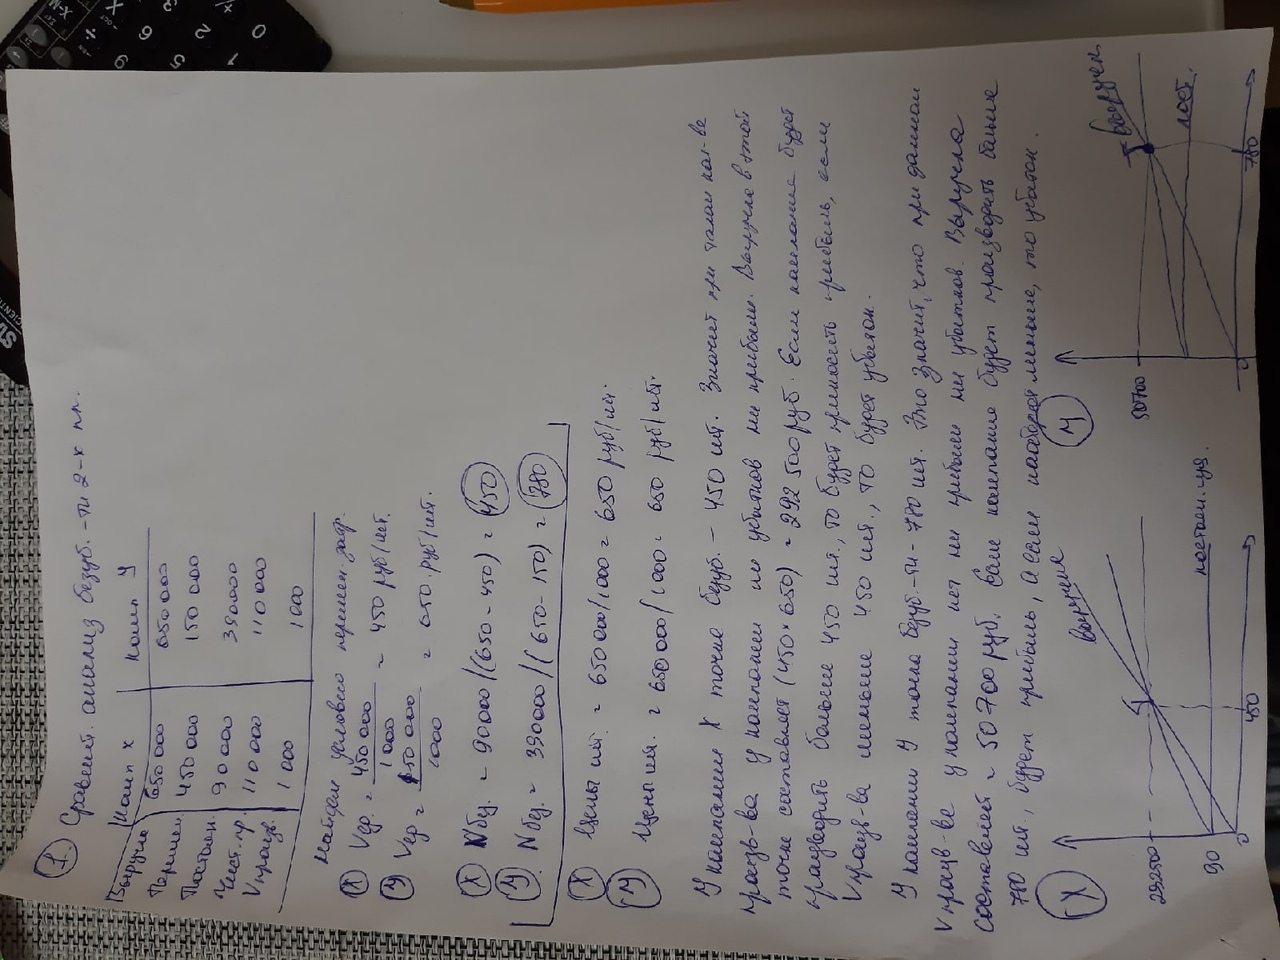 1 Сравнит. анализ безуб.-ти 2-х пл.
Комп X Комп У
Выручка 650 000 650 000
Перемен. 450 000 150 000
Постоян. 90 000 390000
Чист. пр. 110 000 110 000
V произв. 1 000 1 000
Найдем условно перемен. затр.
X Vед = 450 000 / 1 000 = 450 руб/шт.
У Vед = 150 000 / 1000 = 650 руб/шт.
X Nбез. = 90000/(650-450) = 450
У Nбез. = 390000/(650-150) = 780
X Цена шт. = 650 000/1000 = 650 руб/шт.
У Цена шт. = 650 000/1000 = 650 руб/шт.
У компании X точка безуб. - 450 шт. Значит при таком кол-ве
произв-ва у компании ни убытков ни прибыли. Выручка в этой
точке составляет (450×650) = 292 500 руб. Если компания будет
производить больше 450 шт., то будет приносить прибыль, если
V произв-ва меньше 450 шт., то будет убыток.
У компании У точка безуб.-ти - 780 шт. Это значит, что при данном
V произв-ве у компании нет ни прибыли ни убытков. Выручка
составляет = 50 700 руб. Если компания будет производить больше
780 шт., будет прибыль, а если меньше, то убыток.
X
292500
90
0
450
выручка
постоян. изд.
У
50700
0
780
выручка
пост.